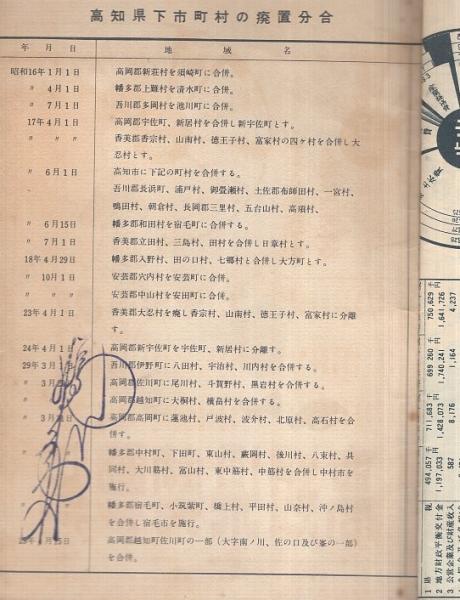 高知県下市町村の廃置分合
年　月　日　地　域　名
昭和16年1月1日　高岡郡新荘村を須崎町に合併。
〃　4月1日　幡多郡上灘村を清水町に合併。
〃　7月1日　吾川郡多岡村を池川町に合併。
17年4月1日　高岡郡宇佐町、新居村を合併し新宇佐町とす。
〃　〃　〃　香美郡香宗村、山南村、徳王子村、富家村の四ヶ村を合併し大
忍村とす。
〃　6月1日　高知市に下記の町村を合併する。
吾川郡長浜町、浦戸村、御畳瀬村、土佐郡布師田村、一宮村、
鴨田村、朝倉村、長岡郡三里村、五台山村、高須村、
〃　6月15日　幡多郡和田村を宿毛町に合併する。
〃　7月1日　香美郡立田村、三島村、田村を合併し日章村とす。
18年4月29日　幡多郡入野村、田の口村、七郷村と合併し大方町とす。
〃　10月1日　安芸郡穴内村を安芸町に合併。
〃　〃　〃　安芸郡中山村を安田町に合併。
23年4月1日　香美郡大忍村を廃し香宗村、山南村、徳王子村、富家村に分離
す。
24年4月1日　高岡郡新宇佐町を宇佐町、新居村に分離す。
29年3月1日　吾川郡伊野町に八田村、宇治村、川内村を合併する。
〃　3月　高岡郡佐川町に尾川村、斗賀野村、黒岩村を合併する。
〃　高岡郡越知町に大桐村、横畠村を合併する。
〃　3月　高岡郡高岡町に蓮池村、戸波村、波介村、北原村、高石村を合
併す。
幡多郡中村町、下田町、東山村、蕨岡村、後川村、八束村、具
同村、大川筋村、富山村、東中筋村、中筋村を合併し中村市を
施行。
幡多郡宿毛町、小筑紫町、橋上村、平田村、山奈村、沖ノ島村
を合併し宿毛市を施行。
高岡郡越知町佐川町の一部（大字南ノ川、佐の口及び峯の一部）
を合併。
494,057千円　711,683千円　699,260千円　750,629千円
1,197,033　1,428,073　1,740,241　1,641,726
587　8,176　1,164　4,237
1　県　税
2　地方財政平衡交付金
3　公営企業及び財産収入